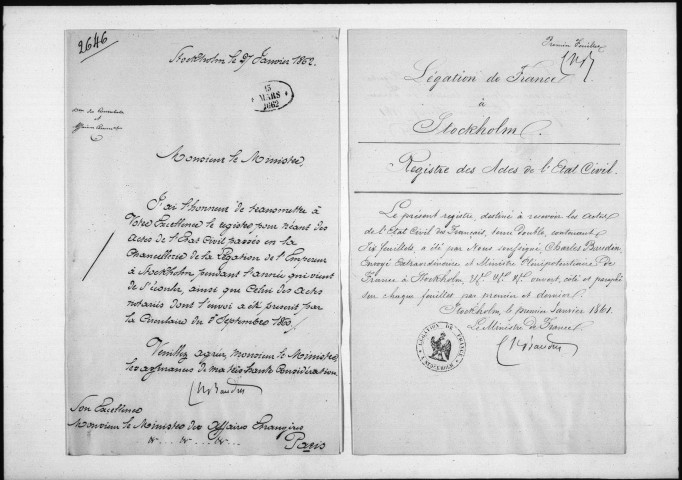 2646
Stockholm le 27 Janvier 1862.
15
MARS
1862
et
Monsieur le Ministre,
J'ai l'honneur de transmettre à
Votre Excellence le registre, pour néant des
Actes de l'Etat Civil passés en la
Chancellerie de la Légation de l'Empereur
à Stockholm pendant l'année qui vient
de s'écouler, ainsi que celui des actes
notariés dont l'envoi a été prescrit par
la Circulaire du Septembre 1860.
Veuillez agréer, Monsieur le Ministre,
les assurances de ma très haute Considération.
Son Excellence
Monsieur le Ministre des Affaires Etrangères
Paris
Premier feuillet
Légation de France
à
Stockholm.
Registre des Actes de l'Etat Civil.
Le présent registre, destiné à recevoir les actes
de l'Etat Civil des Français, tenu double, contenant
Six feuillets, a été par Nous soussigné, Charles Baudin
Envoyé Extraordinaire et Ministre Plénipotentiaire de
France à Stockholm, ouvert, coté et paraphé
sur chaque feuillet par premier et dernier.
Stockholm, le premier Janvier 1861.
Le Ministre de France
LEGATION DE FRANCE
A STOCKHOLM
C Baudin